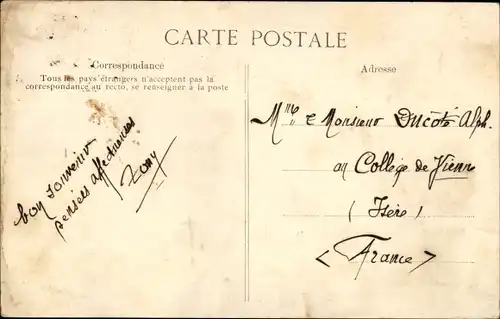 CARTE POSTALE
Correspondance
Tous les pays étrangers n'acceptent pas la
correspondance au recto, se renseigner à la poste
bon souvenir
pensées affectueuses
Tony
Adresse
Mme & Monsieur Ducoté Alph.
au Collège de Vienne
(Isère)
<France>